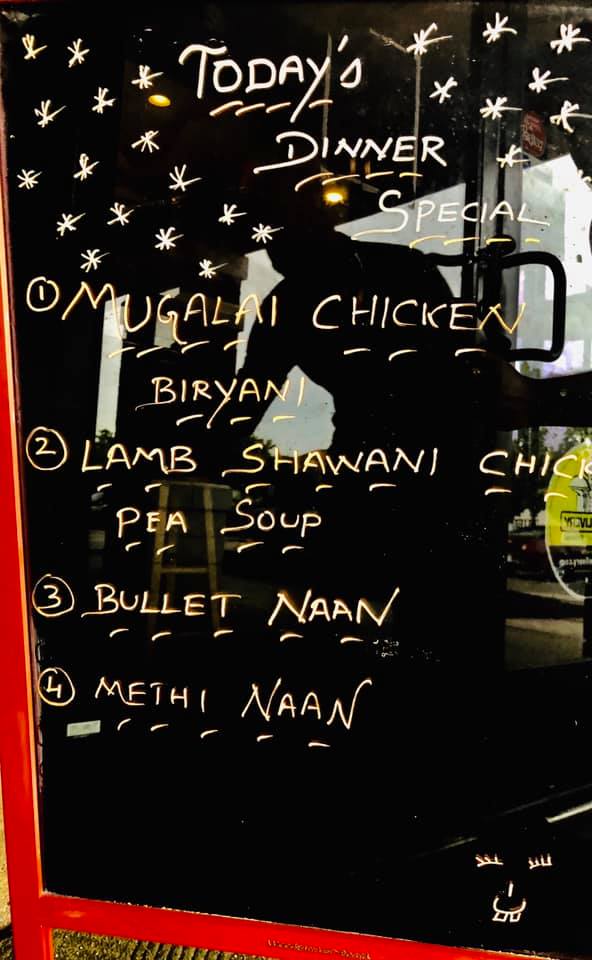 TODAY'S
DINNER
SPECIAL
① MUGALAI CHICKEN
BIRYANI
② LAMB SHAWANI CHICK
PEA SOUP
③ BULLET NAAN
④ METHI NAAN